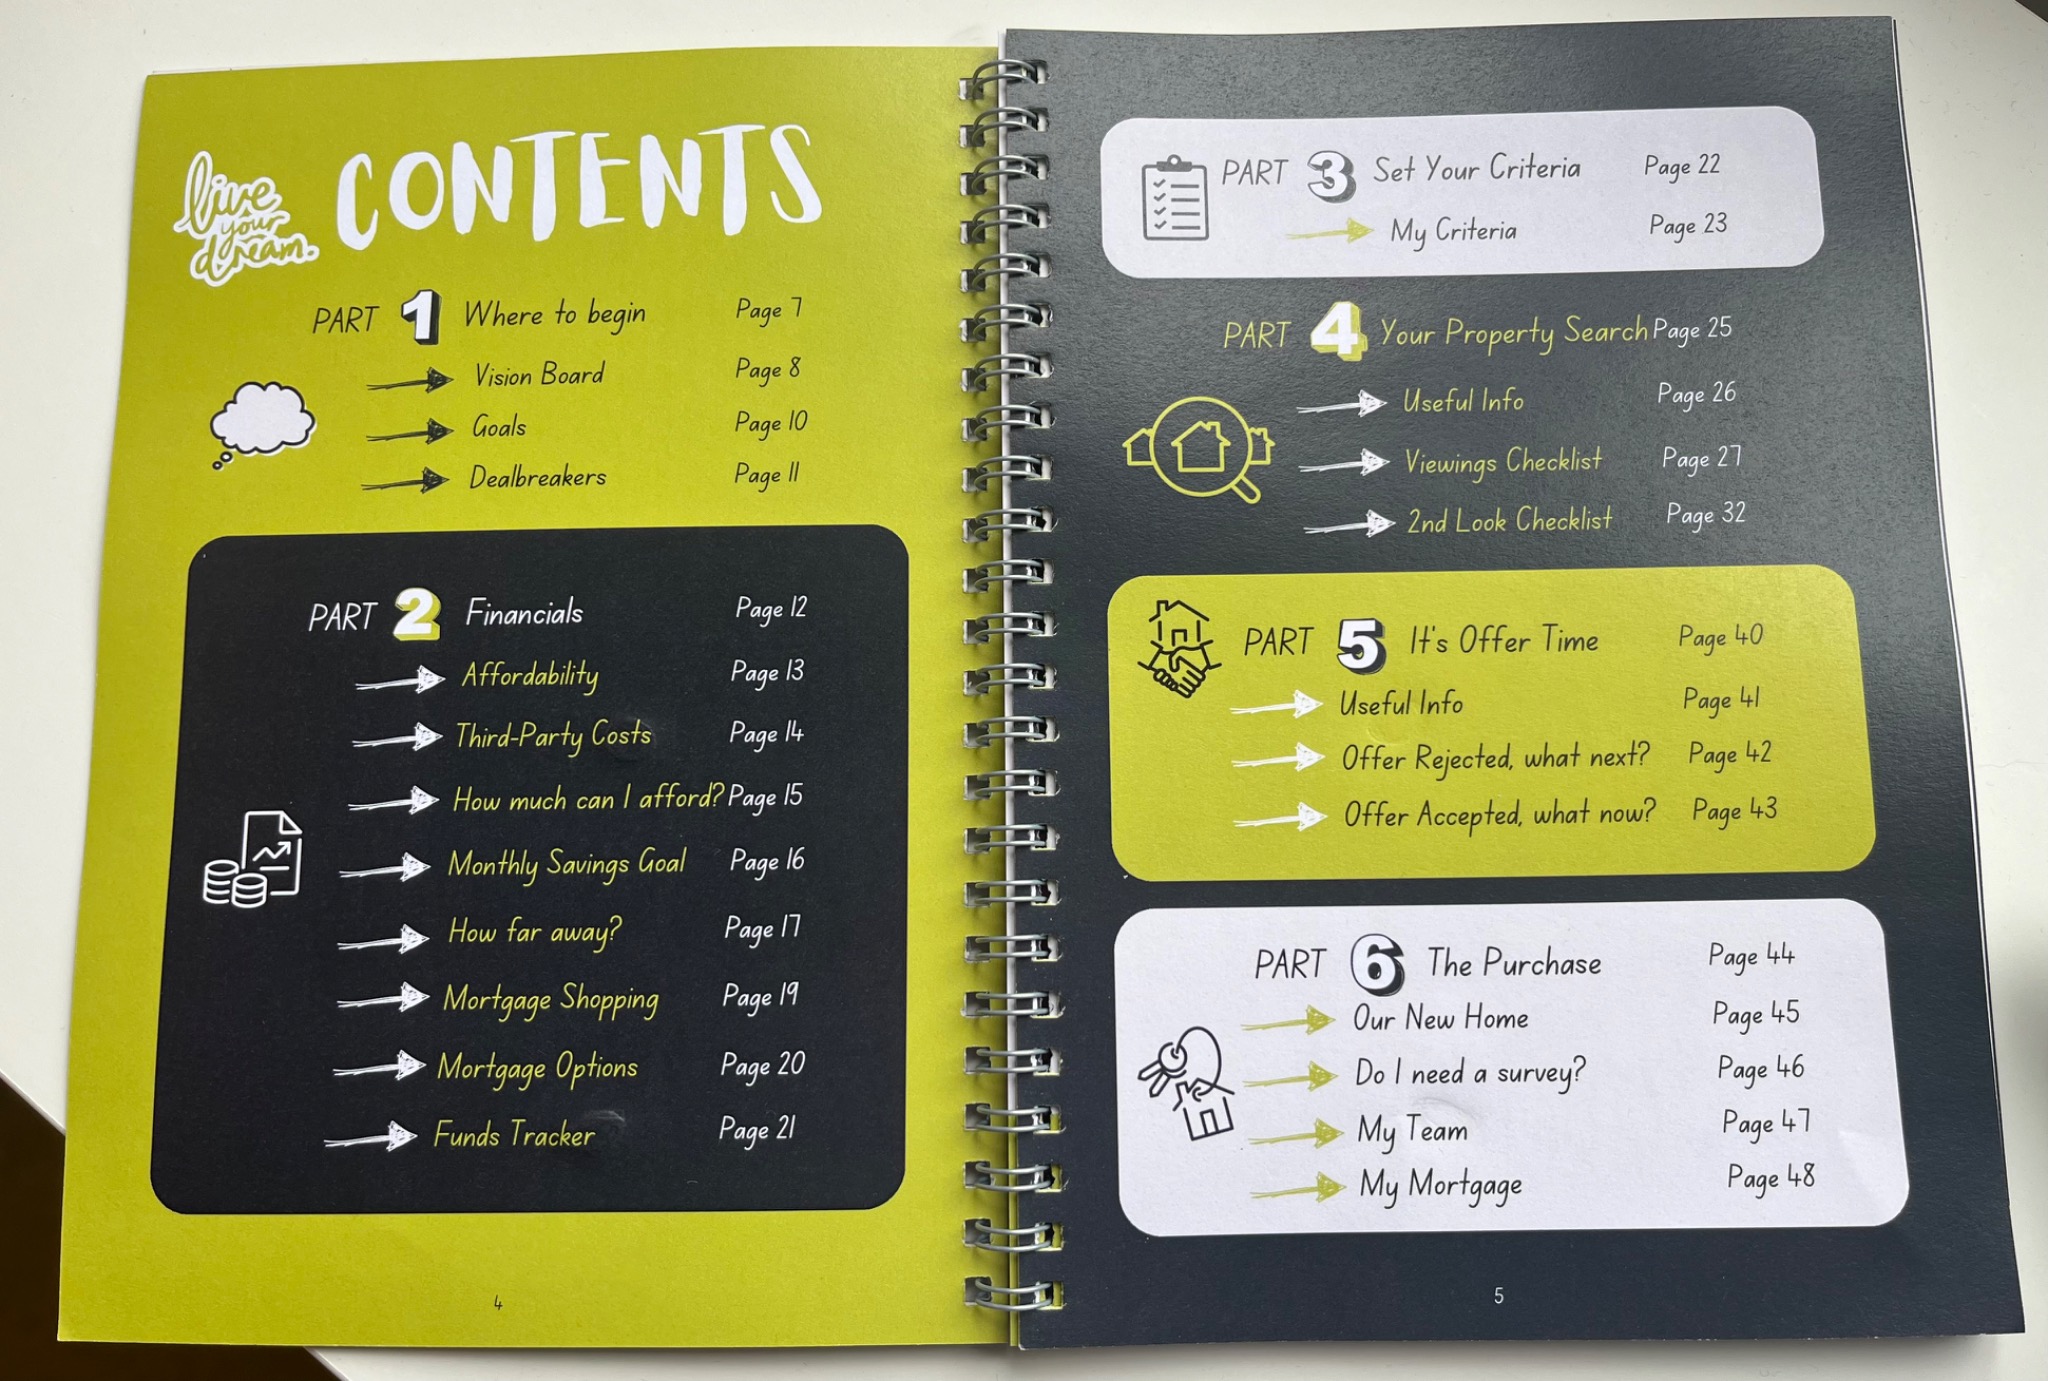 live
your
dream.
CONTENTS
PART 1 Where to begin Page 7
Vision Board Page 8
Goals Page 10
Dealbreakers Page 11
PART 2 Financials Page 12
Affordability Page 13
Third-Party Costs Page 14
How much can I afford? Page 15
Monthly Savings Goal Page 16
How far away? Page 17
Mortgage Shopping Page 19
Mortgage Options Page 20
Funds Tracker Page 21
4
PART 3 Set Your Criteria Page 22
My Criteria Page 23
PART 4 Your Property Search Page 25
Useful Info Page 26
Viewings Checklist Page 27
2nd Look Checklist Page 32
PART 5 It's Offer Time Page 40
Useful Info Page 41
Offer Rejected, what next? Page 42
Offer Accepted, what now? Page 43
PART 6 The Purchase Page 44
Our New Home Page 45
Do I need a survey? Page 46
My Team Page 47
My Mortgage Page 48
5